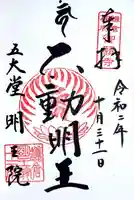 奉拝
令和二年
十月三十一日
不動明王
五大堂
明王院